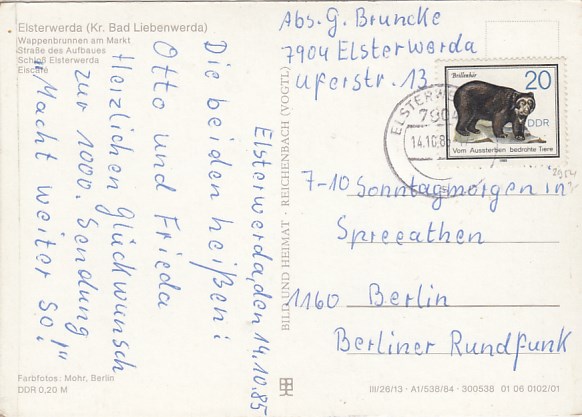 Elsterwerda (Kr. Bad Liebenwerda)
Wappenbrunnen am Markt
Straße des Aufbaues
Schloß Elsterwerda
Eiscafé
Elsterwerda, den 14.10.85
Die beiden heißen:
Otto und Frieda
Herzlichen Glückwunsch
zur 1000. Sendung
"Macht weiter so!"
Farbfotos: Mohr, Berlin
DDR 0,20 M
BILD UND HEIMAT · REICHENBACH (VOGTL)
Abs. G. Bruncke
7904 Elsterwerda
Uferstr. 13
Brillenbär
20
DDR
Vom Aussterben bedrohte Tiere
1985
7904
14.10.85
2984
7-10 Sonntagmorgen in
Spreeathen
1160 Berlin
Berliner Rundfunk
III/26/13 · A1/538/84 · 300538 01 06 0102/01